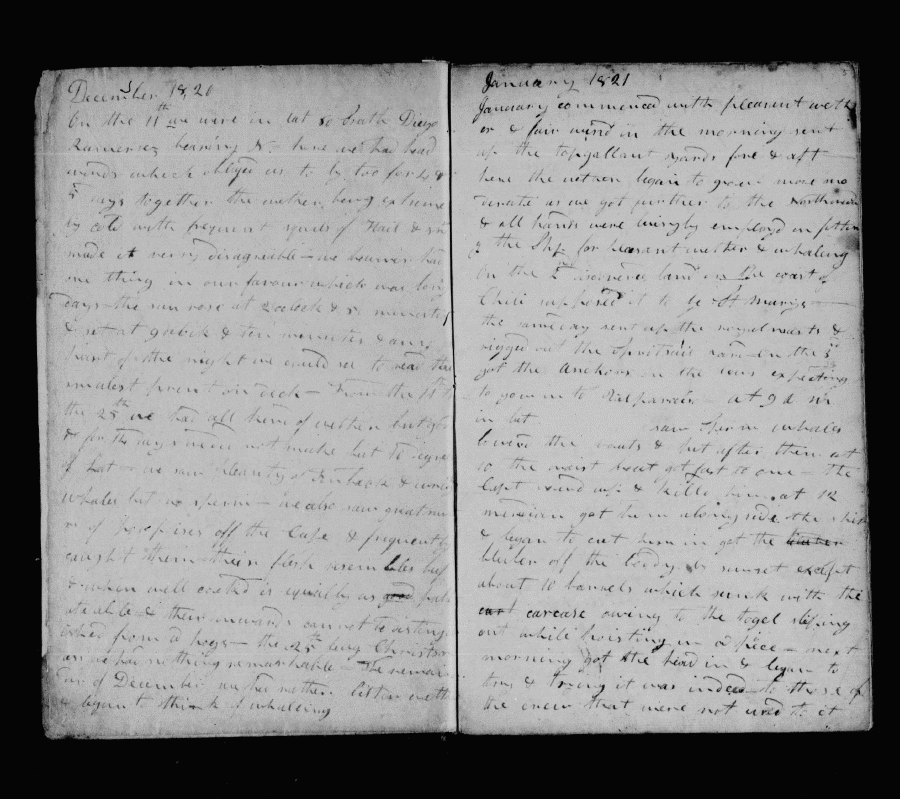 December 1820
On the 11th we were in lat 60 South Diego
Ramierez bearing N. here we had head
winds which obliged us to ly too for 4 &
5 days together the wether being extreme
ly cold with frequent squls of Hail &
made it verry disagreable - we however had
one thing in our favour which was long
days - the sun rose at oclock & minutes
& set at 9 oclock & ten minutes & any
part of the night we could see to read the
smalest print on deck - From the 11th to
the 25th we had all kinds of wether but
& for the days were not make but 10 degre
of Lat - we saw pleanty of Finback &
whales but no sperm - we also saw great num
er of Porepises off the Cape & frequently
caught them - their flesh resembles beef
& when well cooked is equilly as good pala
ateable & their inwards cannot be disting
ished from a hoggs - the 25th being Christm
as we had nothing remarkable - The remai
er of December we had rather better weth
& began to think of whaleing
January 1821
January commenced with pleasent weth
er & fair wind in the morning sent
up the topgallant yards fore & aft
here the wether began to grow more mo
derate as we got further to the northward
& all hands were buisyly employd in fitten
g the Ship for pleasant wether & whaleing
On the 2nd discovered land on the coast of
Chili supposed it to be St Marys -
the same day sent up the royal masts &
rigged out the Spritsail yard - On the 3d
got the anchors on the bows expecting
to go in to Valparaiso - at 9 A M
in lat saw Sperm whales
lowerd the boats & put after them at
10 the waist boat got fast to one - the
Capt went up & killd him, at 12
meridian got him along side the ship
& began to cut him in got the
blubber off the body by sunset except
about 10 barrels which sunk with the
carcase owing to the togel sliping
out while hoisting in a piece - next
morning got the head in & began to
try & trying it was indeed to those of
the crew that were not used to it